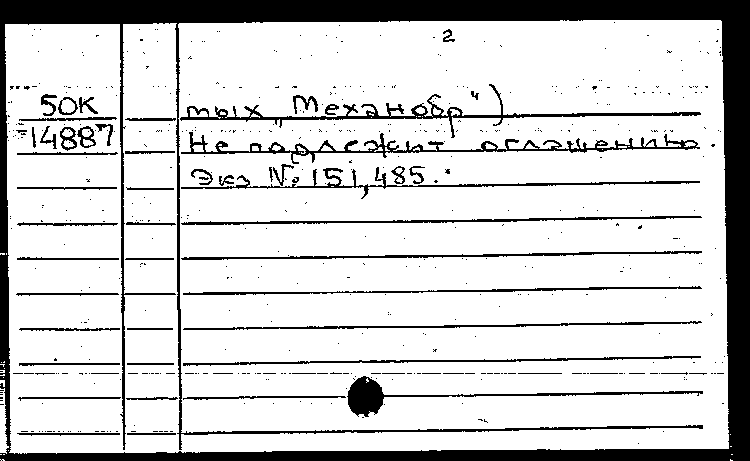 2
50К
14887
тых „Механобр“)
Не подлежит оглашению.
Экз №: 151, 485.